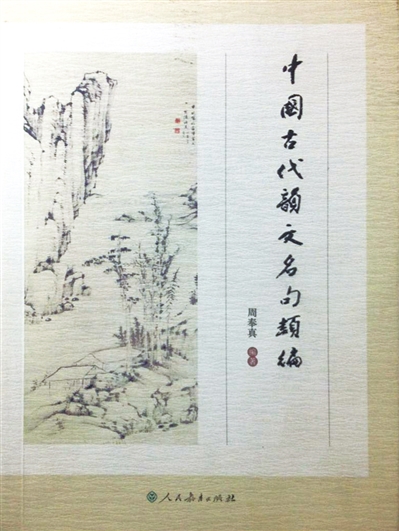 中國古代韻文名句類編
周奉真
人民教育出版社